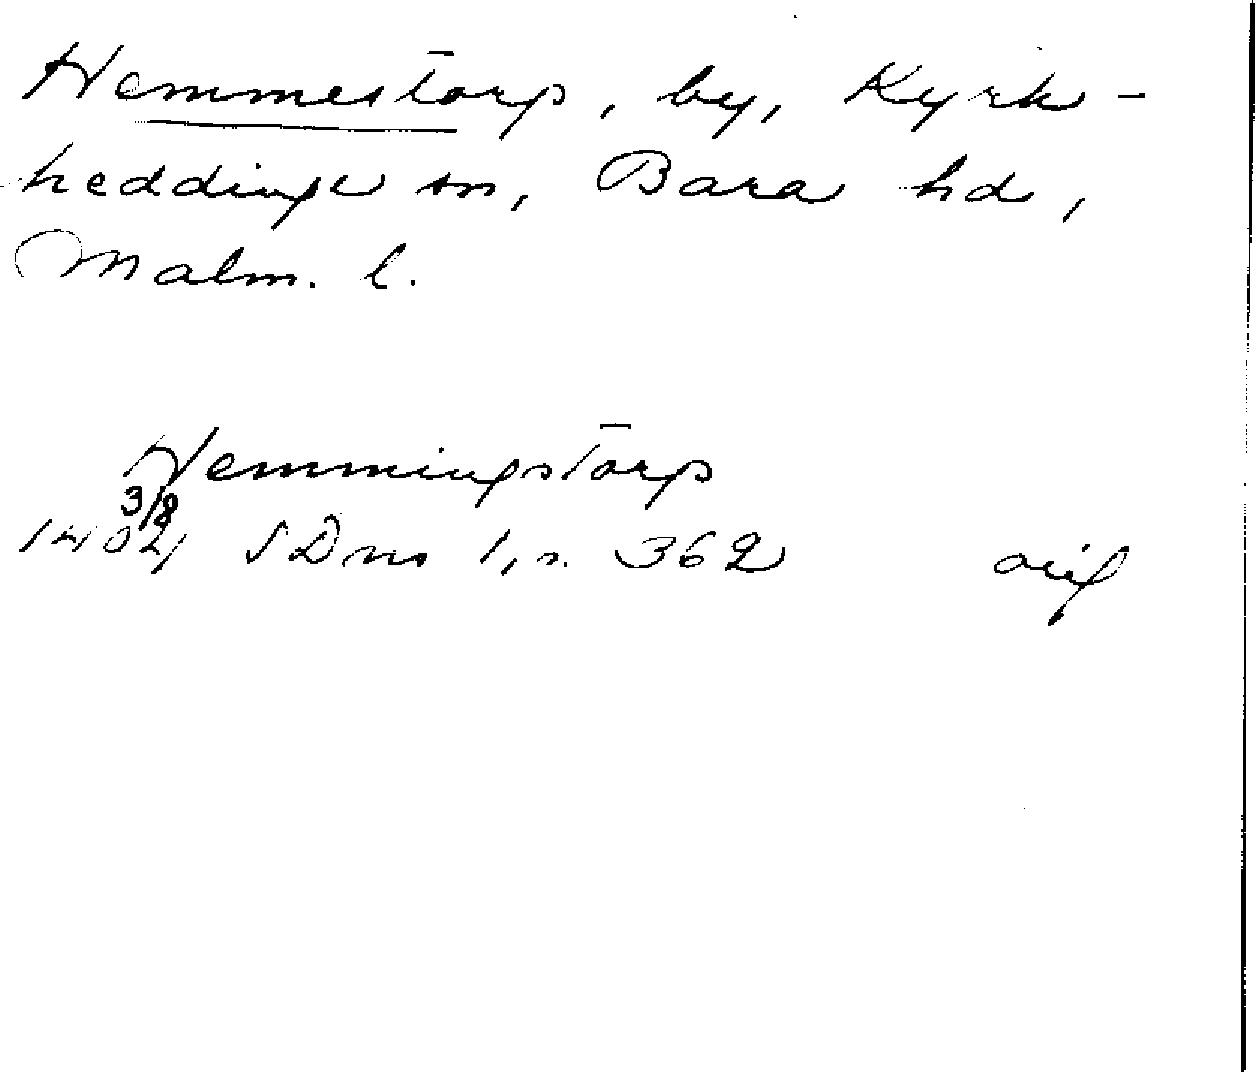 Hemmestorp, by, Kyrk-
heddinge sn, Bara hd,
Malm. l.
Hemmingstorp
3/8
1402 SDns 1, s. 362 orig